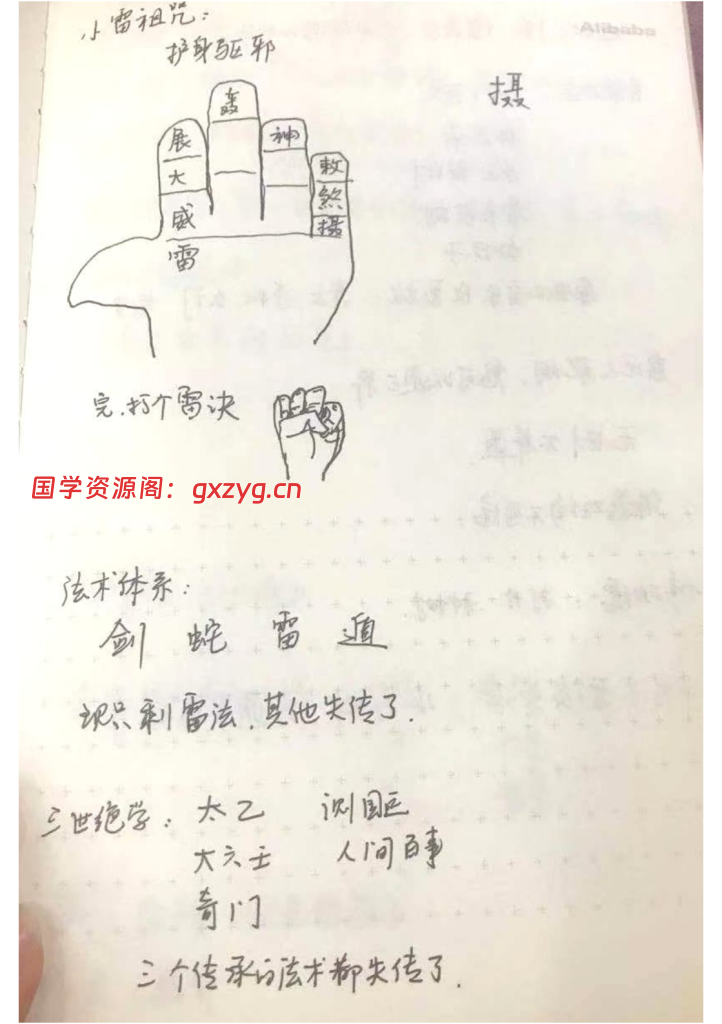 小雷祖咒：
护身驱邪
摄
轰
展
神
敕
大
煞
威
摄
雷
完，打个雷决
国学资源阁：gxzyg.cn
法术体系：
剑 蛇 雷 遁
现只剩雷法，其他失传了.
三世绝学： 太乙 测国运
大六壬 人间百事
奇门
三个传承的法术都失传了.